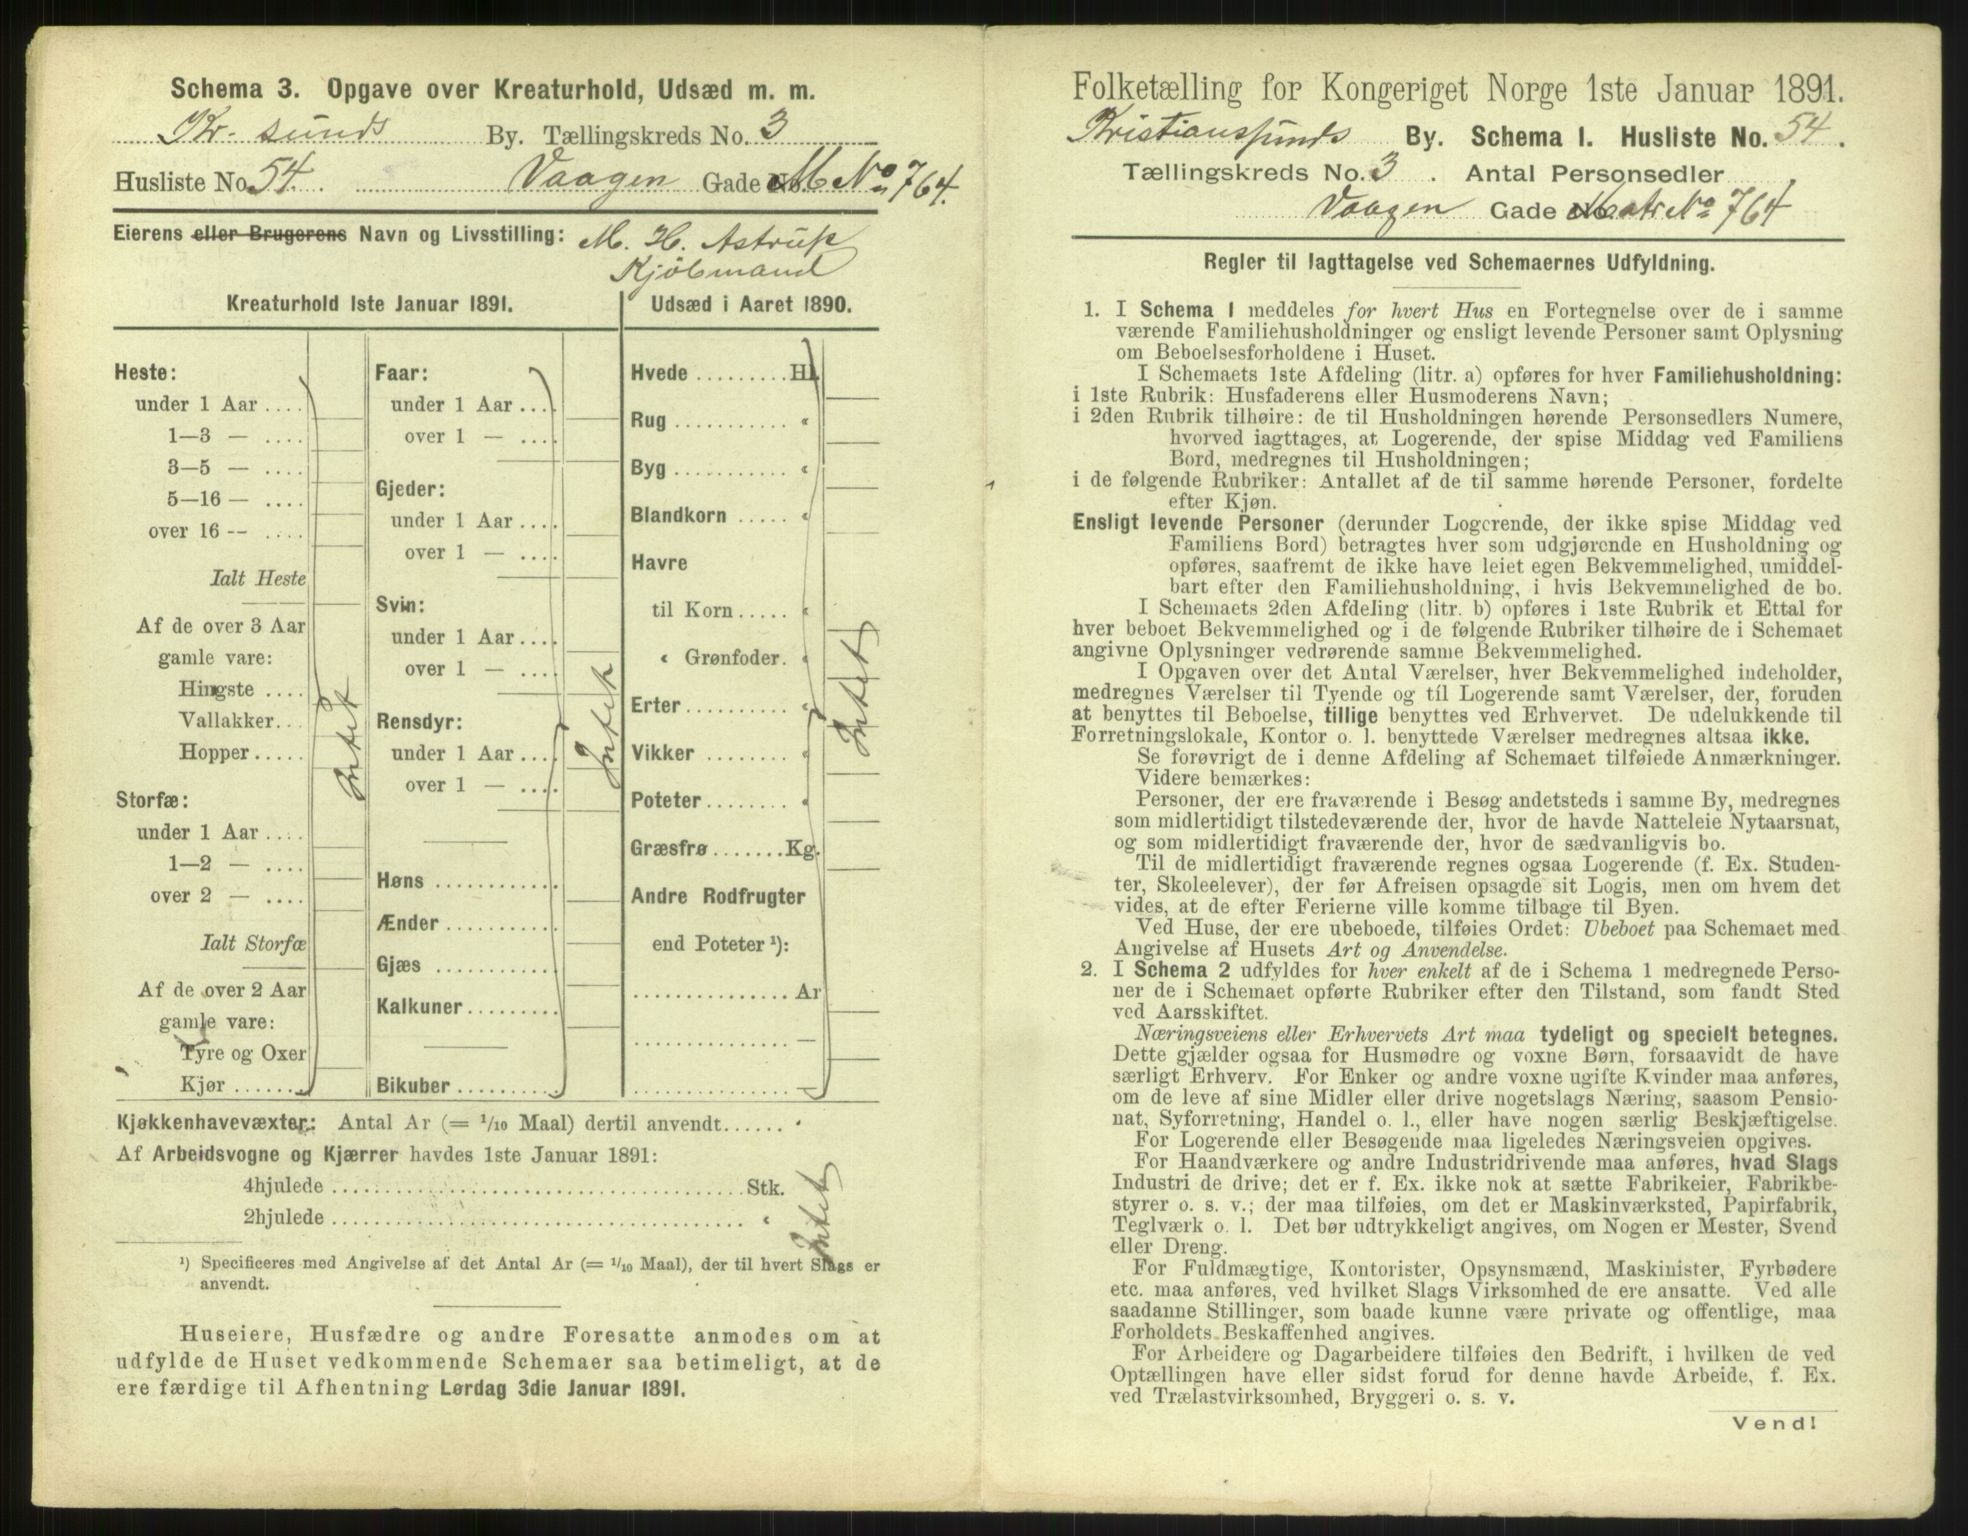 Schema 3. Opgave over Kreaturhold, Udsæd m. m.
Kr-sunds By. Tællingskreds No. 3
Husliste No. 54. Vaagen Gade No. M No 764.
Eierens eller Brugerens Navn og Livsstilling: M. H. Astrup
Kjöbmand
Kreaturhold 1ste Januar 1891.
Heste:
under 1 Aar ....
1—3 — ....
3—5 — ....
5—16 — ....
over 16 -- ....
Ialt Heste
Af de over 3 Aar
gamle vare:
Hingste ....
Vallakker...
Hopper .....
Storfæ:
under 1 Aar ....
1—2 — ....
over 2 — ....
Ialt Storfæ
Af de over 2 Aar
gamle vare:
Tyre og Oxer
Kjør ........
Intet
Faar:
under 1 Aar ....
over 1 — ....
Gjeder:
under 1 Aar ....
over 1 — ....
Svin:
under 1 Aar ....
over 1 — ....
Rensdyr:
under 1 Aar ....
over 1 — ....
Høns ............
Ænder ...........
Gjæs ............
Kalkuner.........
Bikuber ..........
Intet
Udsæd i Aaret 1890.
Hvede ......... Hl.
Rug ........... “
Byg ........... “
Blandkorn ..... “
Havre
til Korn ..... “
“ Grønfoder. “
Erter ......... “
Vikker ........ “
Poteter ........ “
Græsfrø ....... Kg.
Andre Rodfrugter
end Poteter ¹):
............... Ar
............... —
............... —
Intet
Kjøkkenhavevæxter: Antal Ar (= 1/10 Maal) dertil anvendt......
Af Arbeidsvogne og Kjærrer havdes 1ste Januar 1891:
4hjulede ........................................ Stk.
2hjulede ........................................ “
Intet
¹) Specificeres med Angivelse af det Antal Ar (= 1/10 Maal), der til hvert Slags er
anvendt.
Huseiere, Husfædre og andre Foresatte anmodes om at
udfylde de Huset vedkommende Schemaer saa betimeligt, at de
ere færdige til Afhentning Lørdag 3die Januar 1891.
Folketælling for Kongeriget Norge 1ste Januar 1891.
Kristianssunds By. Schema I. Husliste No. 54.
Tællingskreds No. 3. Antal Personsedler .......
Vaagen Gade No. Matr No 764
Regler til Iagttagelse ved Schemaernes Udfyldning.
1. I Schema 1 meddeles for hvert Hus en Fortegnelse over de i samme
værende Familiehusholdninger og ensligt levende Personer samt Oplysning
om Beboelsesforholdene i Huset.
I Schemaets 1ste Afdeling (litr. a) opføres for hver Familiehusholdning:
i 1ste Rubrik: Husfaderens eller Husmoderens Navn;
i 2den Rubrik tilhøire: de til Husholdningen hørende Personsedlers Numere,
hvorved iagttages, at Logerende, der spise Middag ved Familiens
Bord, medregnes til Husholdningen;
i de følgende Rubriker: Antallet af de til samme hørende Personer, fordelte
efter Kjøn.
Ensligt levende Personer (derunder Logerende, der ikke spise Middag ved
Familiens Bord) betragtes hver som udgjørende en Husholdning og
opføres, saafremt de ikke have leiet egen Bekvemmelighed, umiddel-
bart efter den Familiehusholdning, i hvis Bekvemmelighed de bo.
I Schemaets 2den Afdeling (litr. b) opføres i 1ste Rubrik et Ettal for
hver beboet Bekvemmelighed og i de følgende Rubriker tilhøire de i Schemaet
angivne Oplysninger vedrørende samme Bekvemmelighed.
I Opgaven over det Antal Værelser, hver Bekvemmelighed indeholder,
medregnes Værelser til Tyende og til Logerende samt Værelser, der, foruden
at benyttes til Beboelse, tillige benyttes ved Erhvervet. De udelukkende til
Forretningslokale, Kontor o. l. benyttede Værelser medregnes altsaa ikke.
Se forøvrigt de i denne Afdeling af Schemaet tilføiede Anmærkninger.
Videre bemærkes:
Personer, der ere fraværende i Besøg andetsteds i samme By, medregnes
som midlertidigt tilstedeværende der, hvor de havde Natteleie Nytaarsnat,
og som midlertidigt fraværende der, hvor de sædvanligvis bo.
Til de midlertidigt fraværende regnes ogsaa Logerende (f. Ex. Studen-
ter, Skoleelever), der før Afreisen opsagde sit Logis, men om hvem det
vides, at de efter Ferierne ville komme tilbage til Byen.
Ved Huse, der ere ubeboede, tilføies Ordet: Ubeboet paa Schemaet med
Angivelse af Husets Art og Anvendelse.
2. I Schema 2 udfyldes for hver enkelt af de i Schema 1 medregnede Perso-
ner de i Schemaet opførte Rubriker efter den Tilstand, som fandt Sted
ved Aarsskiftet.
Næringsveiens eller Erhvervets Art maa tydeligt og specielt betegnes.
Dette gjælder ogsaa for Husmødre og voxne Børn, forsaavidt de have
særligt Erhverv. For Enker og andre voxne ugifte Kvinder maa anføres,
om de leve af sine Midler eller drive nogetslags Næring, saasom Pensio-
nat, Syforretning, Handel o. l., eller have nogen særlig Beskjæftigelse.
For Logerende eller Besøgende maa ligeledes Næringsveien opgives.
For Haandværkere og andre Industridrivende maa anføres, hvad Slags
Industri de drive; det er f. Ex. ikke nok at sætte Fabrikeier, Fabrikbe-
styrer o. s. v.; der maa tilføies, om det er Maskinværksted, Papirfabrik,
Teglværk o. l. Det bør udtrykkeligt angives, om Nogen er Mester, Svend
eller Dreng.
For Fuldmægtige, Kontorister, Opsynsmænd, Maskinister, Fyrbødere
etc. maa anføres, ved hvilket Slags Virksomhed de ere ansatte. Ved alle
saadanne Stillinger, som baade kunne være private og offentlige, maa
Forholdets Beskaffenhed angives.
For Arbeidere og Dagarbeidere tilføies den Bedrift, i hvilken de ved
Optællingen have eller sidst forud for denne havde Arbeide, f. Ex.
ved Trælastvirksomhed, Bryggeri o. s. v.
Vend!